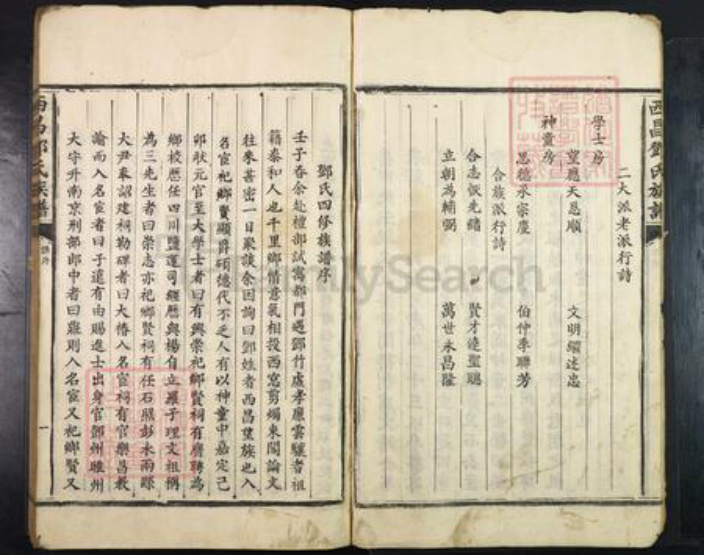 西昌鄧氏族譜
二大派老派行詩
學士房
望應天恩順
文明繼述忠
神童房
思德承宗慶
伯仲季聯芳
合族派行詩
合志恢先緒
賢才達聖聰
立朝為輔弼
萬世永昌隆
鄧氏四修族譜序
壬子春余赴禮部試寓都門遇鄧竹虛孝廉雲驤者祖
籍泰和人也千里鄉情意氣相投西窓剪燭東閣論文
往來甚密一日聚談余因詢曰鄧姓者西昌望族也入
名宦祀鄉賢顯爵碩德代不乏人有以神童中嘉定己
卯狀元官至大學士者曰有興崇祀鄉賢祠有膺聘為
鄉校歷任四川鹽運司經歷與楊自立羅子理文祖稱
為三先生者曰崇志亦祀鄉賢祠有任石照彭水兩縣
大尹奉詔建祠勒碑者曰大椿入名宦祠有官樂昌教
諭而入名宦者曰子遠有由賜進士出身官鄧州雅州
大守升南京刑部郎中者曰 則入名宦又祀鄉賢又
西昌鄧氏族譜
譜序
一
FamilySearch